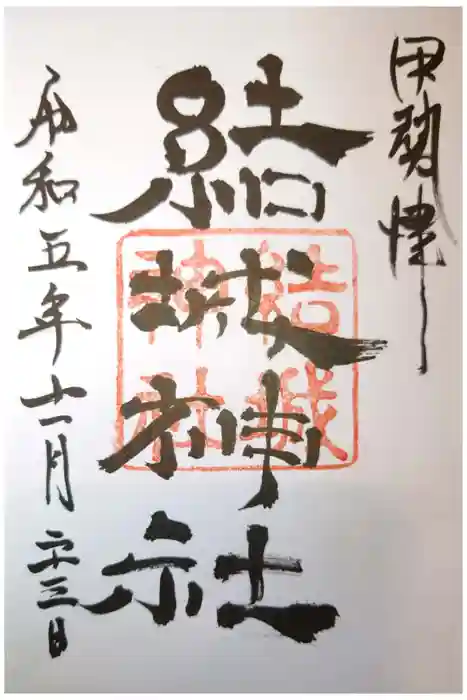 伊勢津
結城神社
結城
神社
令和五年十一月二十三日